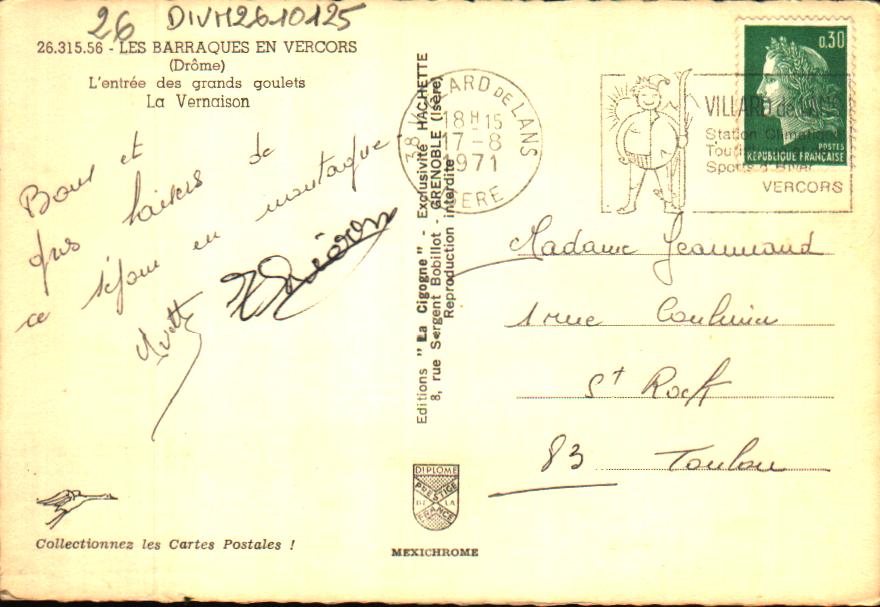 26 DIVM26-10125
26.315.56 - LES BARRAQUES EN VERCORS
(Drôme)
L'entrée des grands goulets
La Vernaison
Bons et
gros baisers de
ce séjour en montagne.
Yvette
Editions "La Cigogne" - Exclusivité HACHETTE
8, rue Sergent Bobillot - GRENOBLE (Isère)
Reproduction interdite
38 VILLARD DE LANS
18H15
17-8
1971
ISERE
VILLARD de LANS
Station Climatique
Sports d'Hiver
VERCORS
0,30
POSTES
REPUBLIQUE FRANÇAISE
Madame Jeannaud
1 rue
St Roch
83 Toulon
DIPLOME
PRESTIGE
DE LA
FRANCE
MEXICHROME
Collectionnez les Cartes Postales !